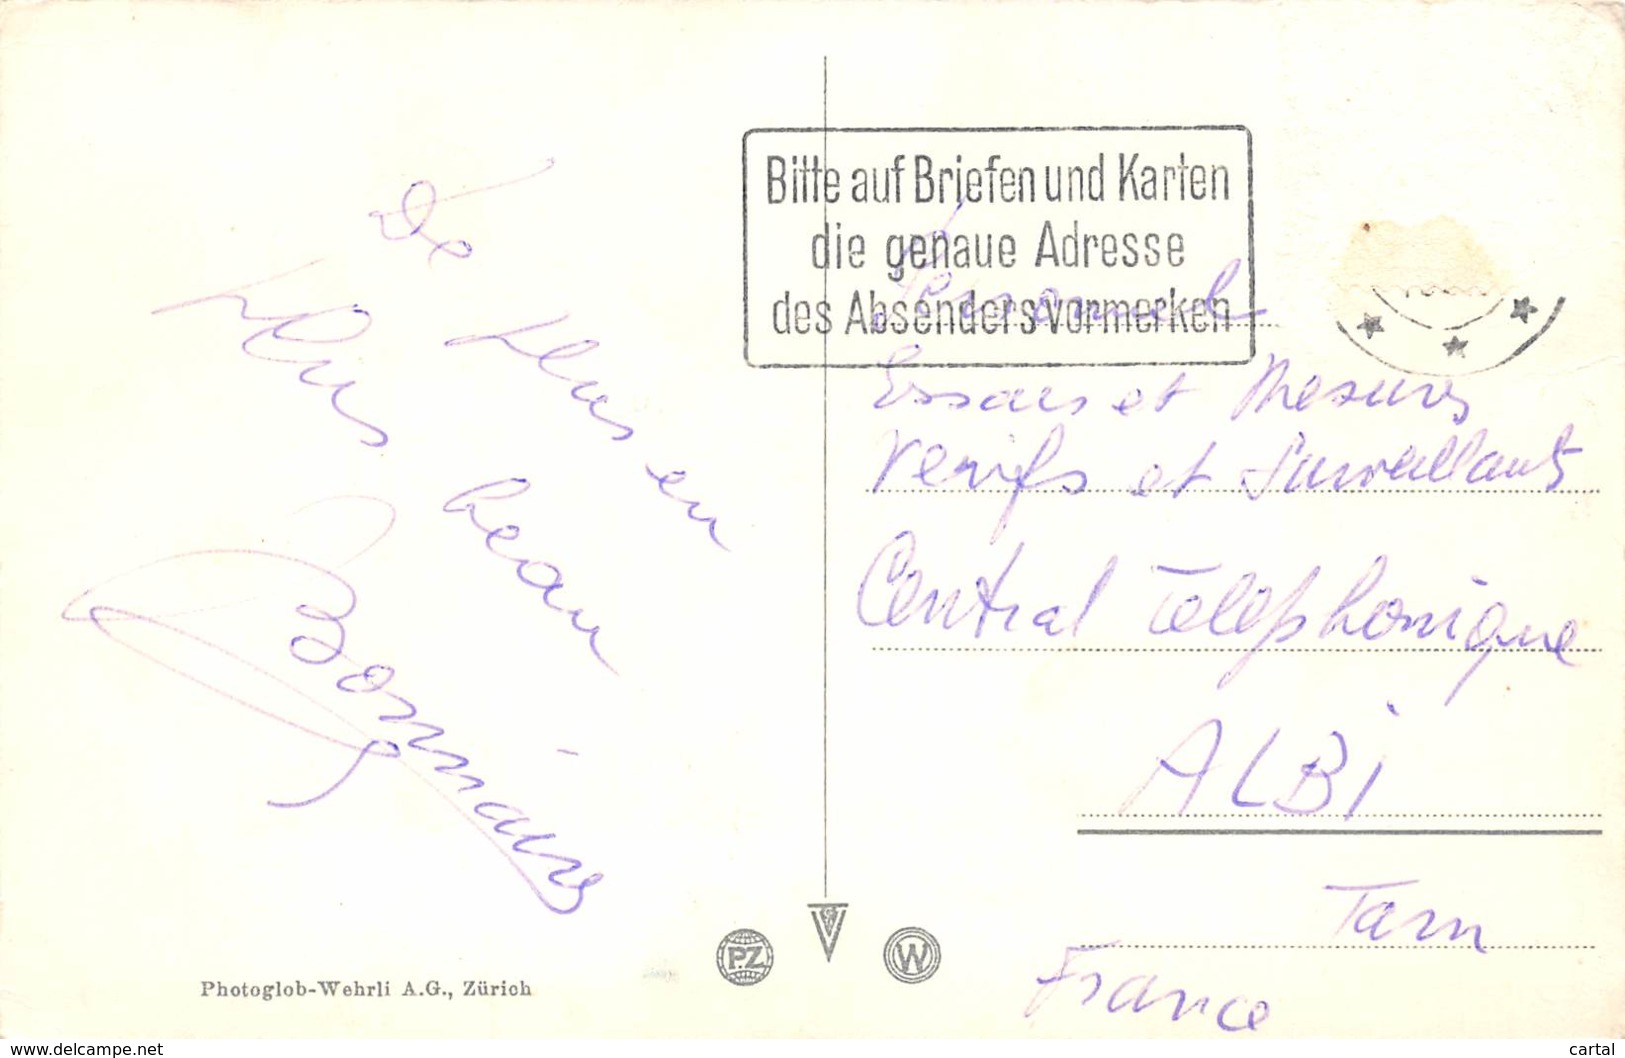 De plus en
plus beau
Bonjours
Photoglob-Wehrli A.G., Zürich
Bitte auf Briefen und Karten
die genaue Adresse
des Absenders vormerken
Personnel
Essais et Mesures
Verifs et Surveillants
Central Telephonique
ALBi
Tarn
France
P.Z
W
www.delcampe.net
cartal